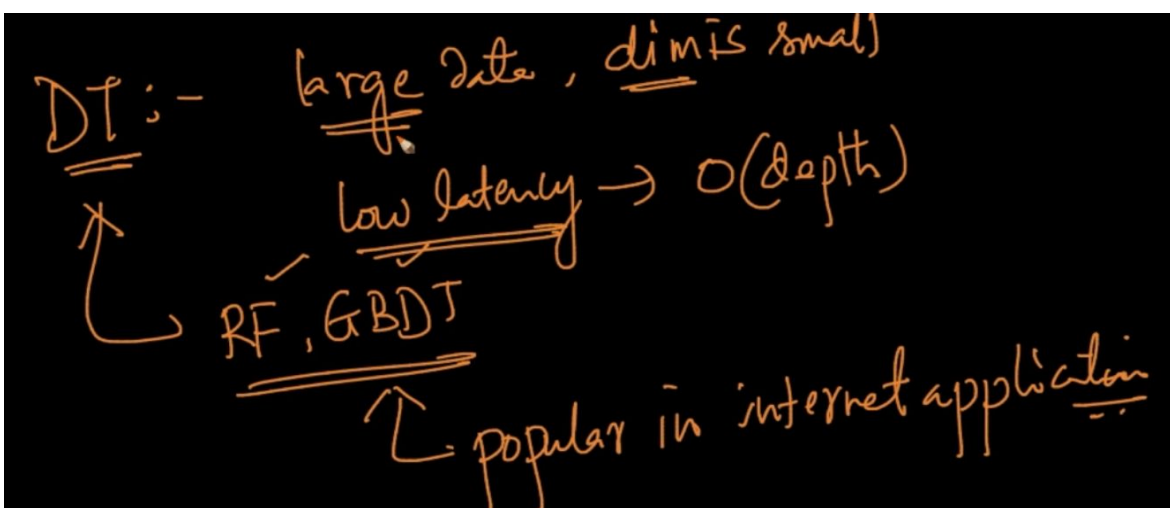 DT:- large data, dim is small
low latency → O(depth)
RF, GBDT
popular in internet application